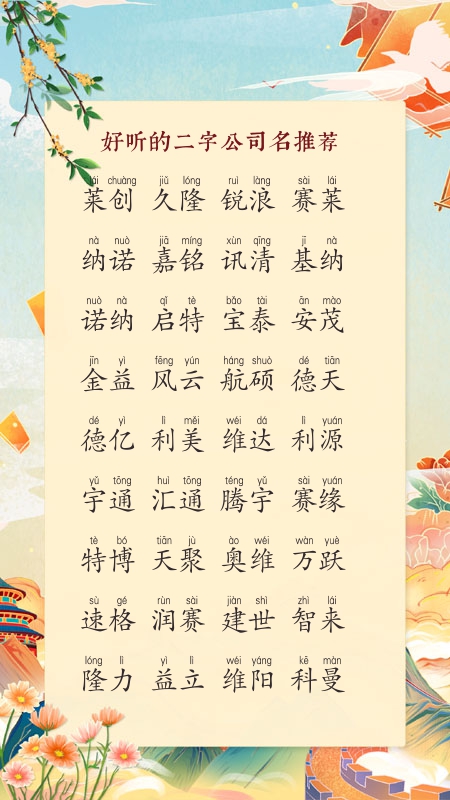 好听的二字公司名推荐
lái chuàng jiǔ lóng ruì làng sài lái
莱创 久隆 锐浪 赛莱
nà nuò jiā míng xùn qīng jī nà
纳诺 嘉铭 讯清 基纳
nuò nà qǐ tè bǎo tài ān mào
诺纳 启特 宝泰 安茂
jīn yì fēng yún háng shuò dé tiān
金益 风云 航硕 德天
dé yì lì měi wéi dá lì yuán
德亿 利美 维达 利源
yǔ tōng huì tōng téng yǔ sài yuán
宇通 汇通 腾宇 赛缘
tè bó tiān jù ào wéi wàn yuè
特博 天聚 奥维 万跃
sù gé rùn sài jiàn shì zhì lái
速格 润赛 建世 智来
lóng lì yì lì wéi yáng kē màn
隆力 益立 维阳 科曼